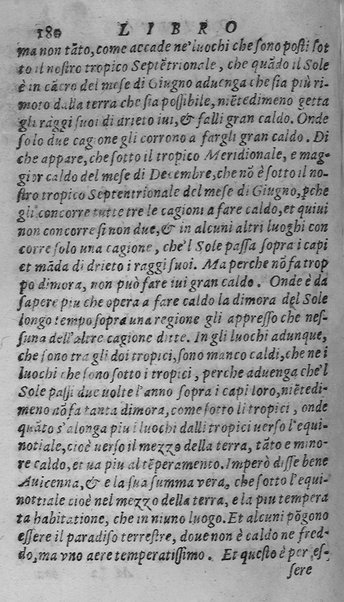 180 LIBRO
ma non tãto, come accade ne' luochi che sono posti sot
to il nostro tropico Septẽtrionale, che quãdo il Sole
è in cãcro del mese di Giugno aduenga che sia piu ri-
moto dalla terra che sia possibile, niẽtedimeno getta
gli raggi suoi di drieto iui, & falli gran caldo. Onde
solo due cagione gli corrono a fargli gran caldo. Di
che appare, che sotto il tropico Meridionale, e mag-
gior caldo del mese di Decembre, che nõ è sotto il no-
stro tropico Septentrionale del mese di Giugno, pche
gli concorre tutte tre le cagioni a fare caldo, et quiui
non concorre si non due, & in alcuni altri luoghi con
corre solo una cagione, che'l Sole passa sopra i capi
et mãda di drieto i raggi suoi. Ma perche nõ fa trop
po dimora, non può fare iui gran caldo. Onde è da
sapere piu che opera a fare caldo la dimora del Sole
longo tempo sopra una regione gli appresso che nes-
suna dell'altre cagione ditte. In gli luochi adunque,
che sono tra gli doi tropici, sono manco caldi, che ne i
luochi che sono sotto i tropici, perche aduenga che'l
Sole passi due uolte l'anno sopra i capi loro, niẽtedi-
meno nõ fa tanta dimora, come sotto li tropici, onde
quãto s'alonga piu i luochi dalli tropici uerso l'equi-
notiale, cioè uerso il mezzo della terra, tãto e mino-
re caldo, et ua piu al tẽperamento. Imperò disse bene
Auicenna, & e la sua summa vera, che sotto l'equi-
nottiale cioè nel mezzo della terra, e la piu tempera
ta habitatione, che in niuno luogo. Et alcuni põgono
essere il paradiso terrestre, doue non è caldo ne fred-
do, ma vno aere temperatissimo. Et questo è per es-
sere